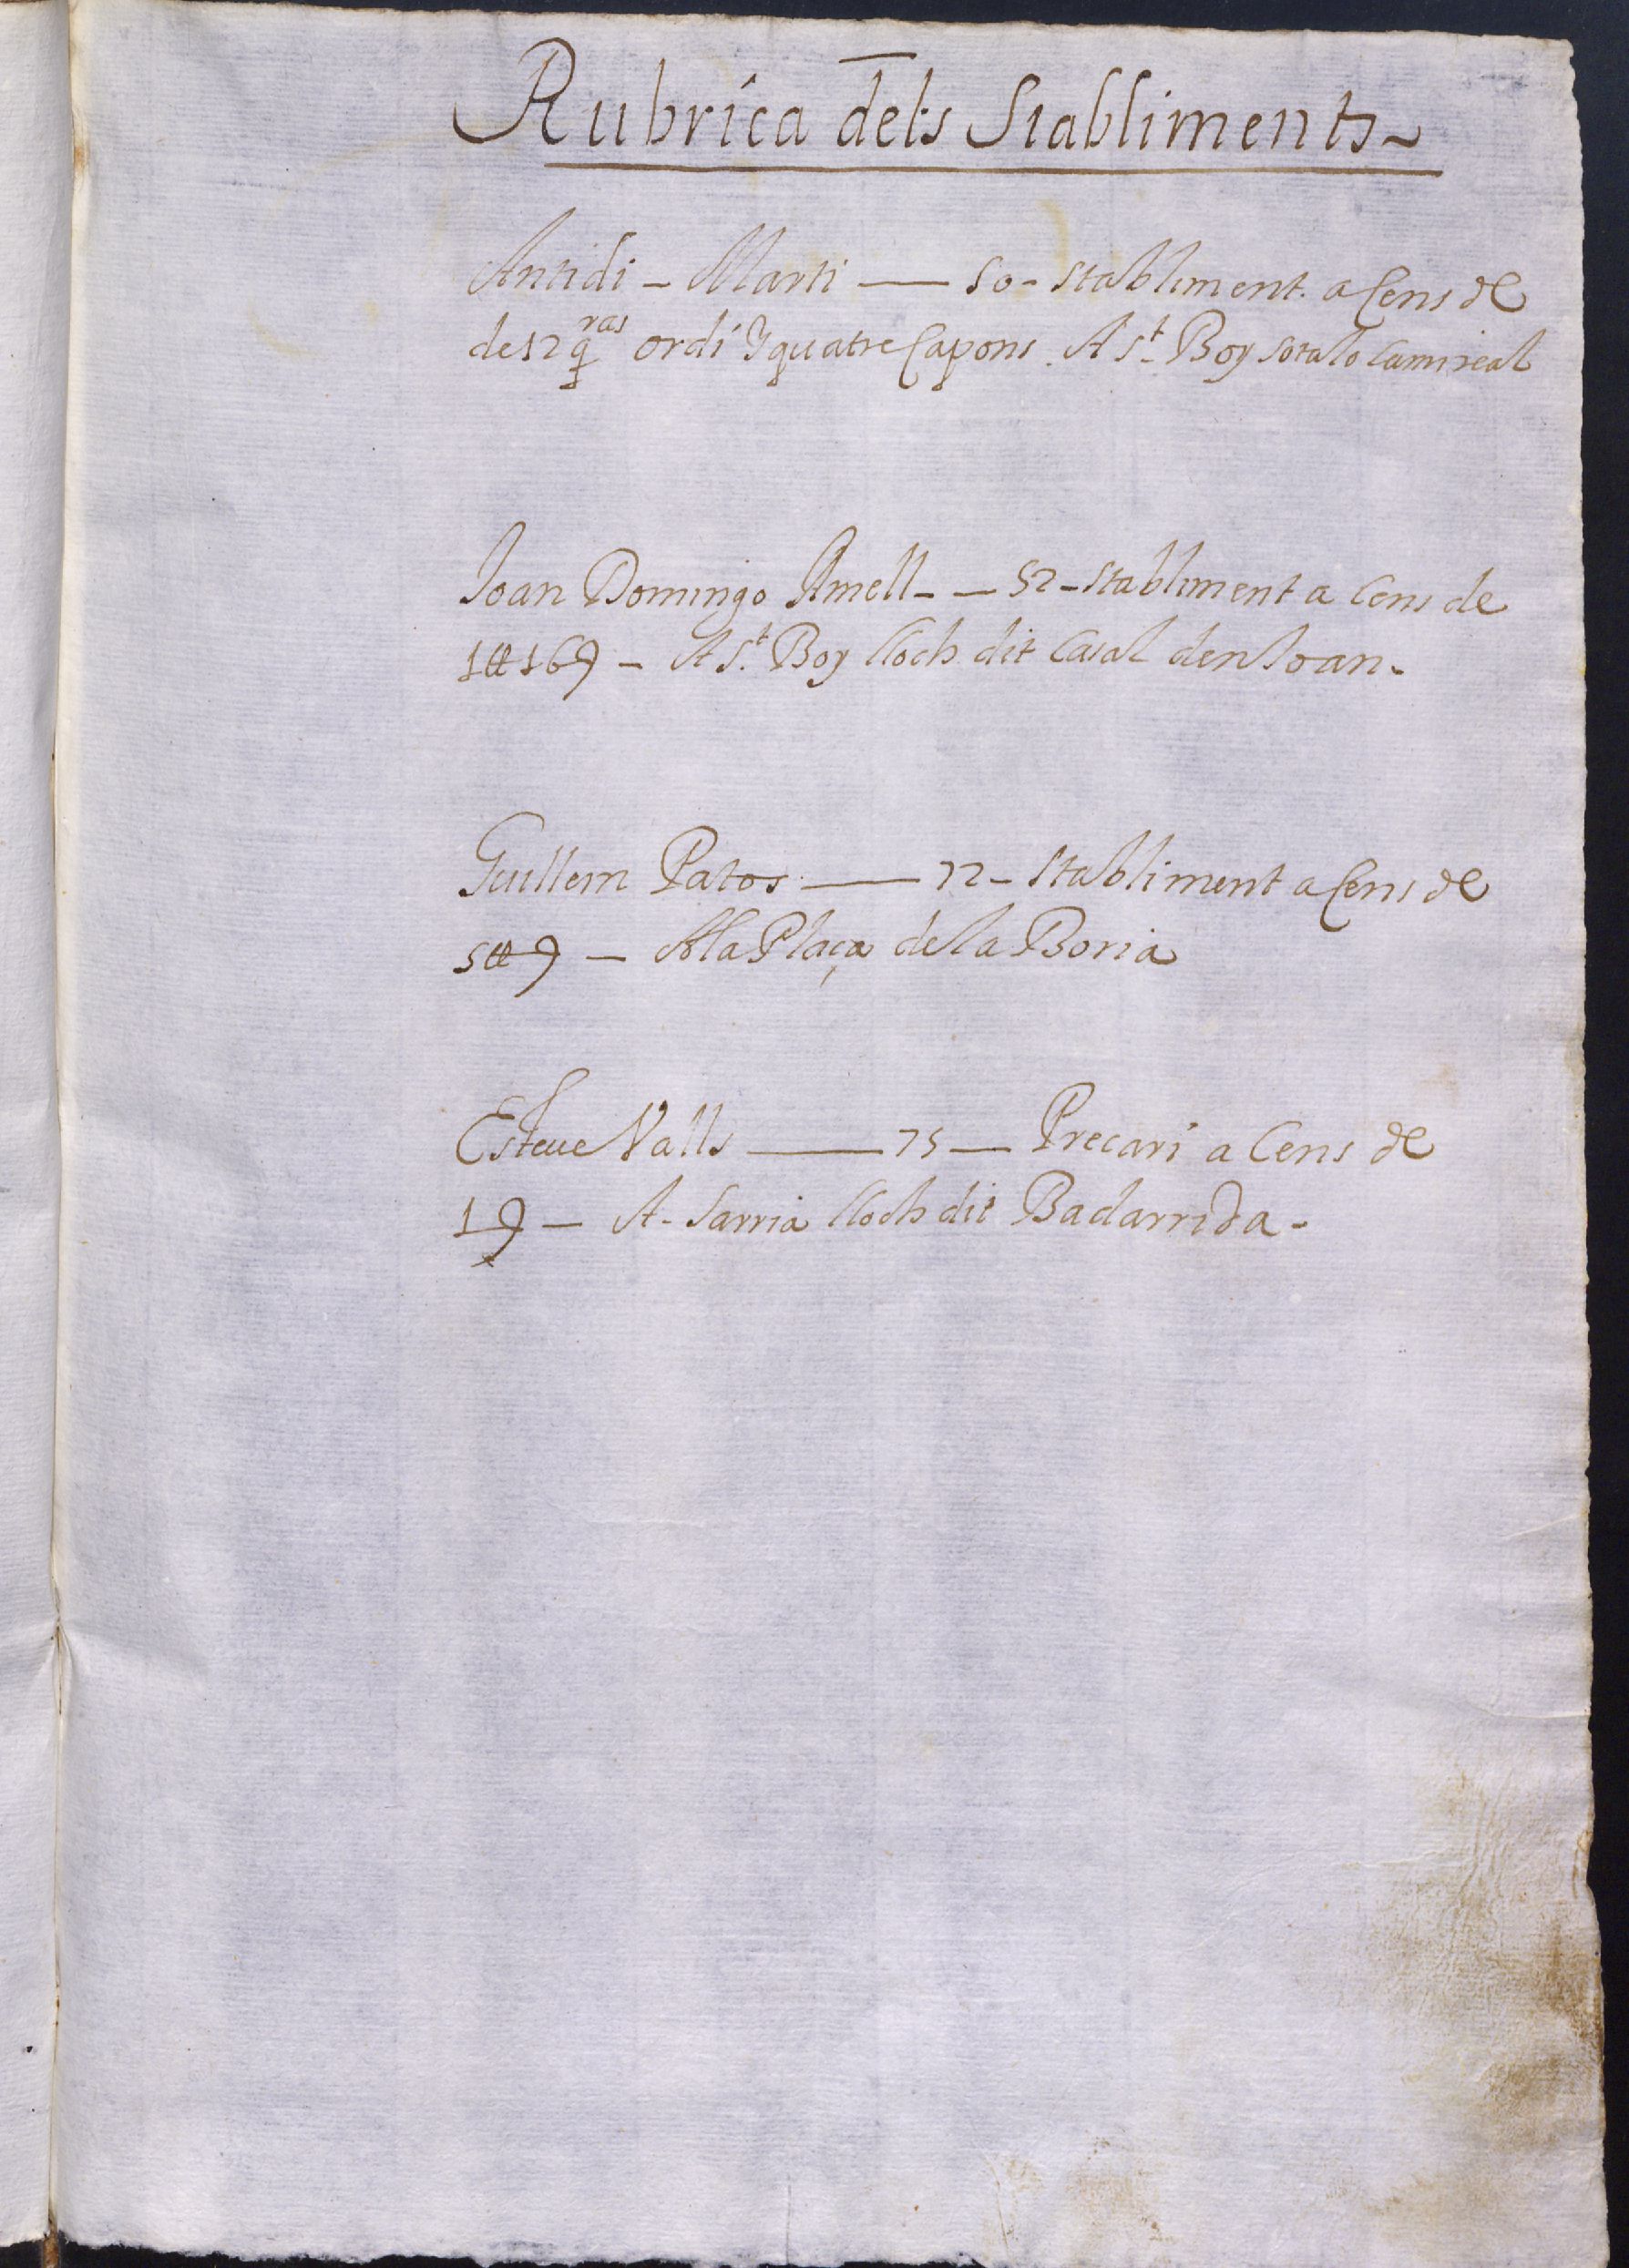 Rubrica dels Stabliments
Antidi - Marti — 50 - stabliment. a Cens de
de 12 q.ras ordi Y quatre Capons. A St. Boy sota lo Cami real
Joan Domingo Amell - — 52 - stabliment a Cens de
1 ₶ 16 ș - A St. Boy lloch dit Casal den Joan.
Guillem Patos — 72 - Stabliment a Cens de
5 ₶ ș — A la Plaça de la Boria
Esteue Valls — 75 — Precari a Cens de
1 ș — A - Sarria lloch dit Badarrida -